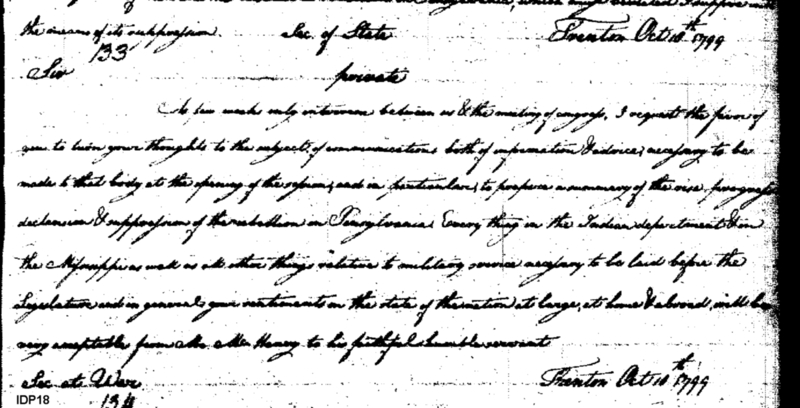 the means of its suppression
Sec. of State
Trenton Oct 10th 1799
133
Sir
private
As few weeks only intervene between us & the meeting of congress, I request the favor of
you to turn your thoughts to the subject of communications both of information & advice, necessary to be
made to that body at the opening of the session, and in particular, to prepare a summary of the rise, progress
declension & suppression of the rebellion in Pensylvania. Every thing in the Indian department & on
the Missisippi as well as all other things relative to military
necessary to be laid before the
Legislature and in general, your sentiments on the state of the nation at large, at home & abroad, will be
very acceptable from Mr. McHenry to his faithful humble servant
Sec at War
Trenton Oct 10th 1799
134
IDP18